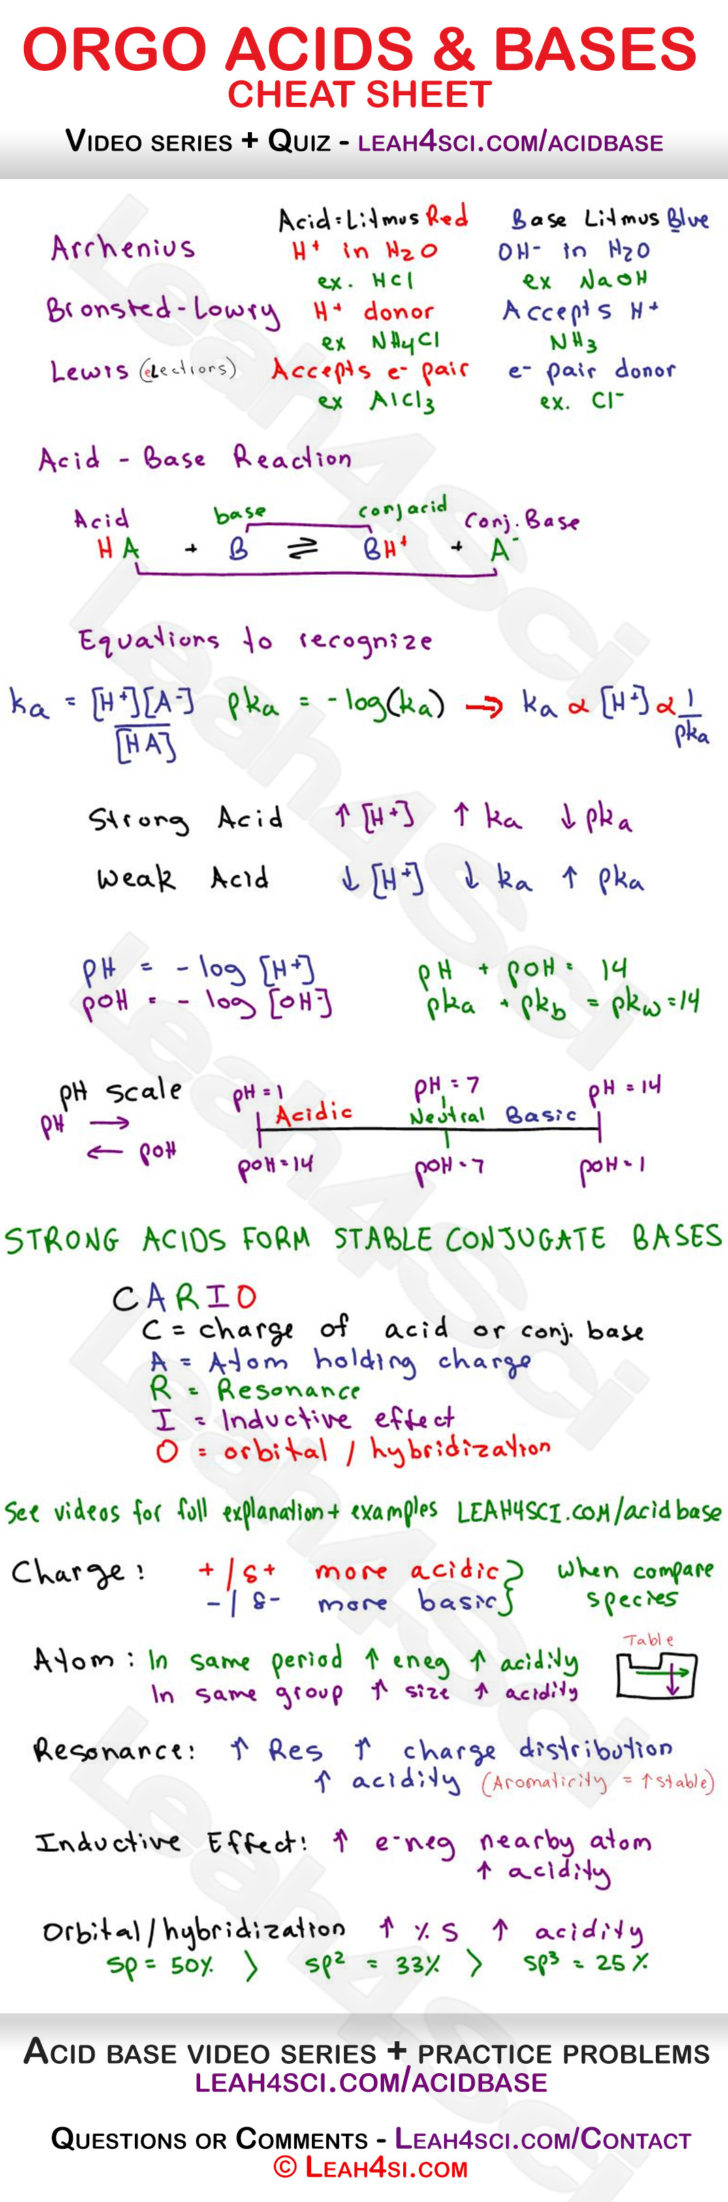 ORGO ACIDS & BASES
CHEAT SHEET
VIDEO SERIES + QUIZ - LEAH4SCI.COM/ACIDBASE
Acid=Litmus Red Base Litmus Blue
Arrhenius H+ in H2O OH- in H2O
ex. HCl ex NaOH
Bronsted-Lowry H+ donor Accepts H+
ex NH4Cl NH3
Lewis (electrons) Accepts e- pair e- pair donor
ex AlCl3 ex. Cl-
Acid - Base Reaction
Acid base conj acid Conj. Base
HA + B ⇌ BH+ + A-
Equations to recognize
ka = [H+][A-]/[HA] pka = -log(ka) → ka α [H+] α 1/pka
Strong Acid ↑ [H+] ↑ ka ↓ pka
Weak Acid ↓ [H+] ↓ ka ↑ pka
pH = - log [H+] pH + pOH = 14
pOH = - log [OH-] pka + pkb = pkw = 14
pH scale pH = 1 pH = 7 pH = 14
pH → Acidic Neutral Basic
← pOH pOH = 14 pOH = 7 pOH = 1
STRONG ACIDS FORM STABLE CONJUGATE BASES
CARIO
C = charge of acid or conj. base
A = Atom holding charge
R = Resonance
I = Inductive effect
O = orbital / hybridization
See videos for full explanation + examples LEAH4SCI.COM/acidbase
Charge: + / δ+ more acidic } when compare
- / δ- more basic } species
Table
Atom: In same period ↑ eneg ↑ acidity
In same group ↑ size ↑ acidity
Resonance: ↑ Res ↑ charge distribution
↑ acidity (Aromaticity = ↑ stable)
Inductive Effect: ↑ e-neg nearby atom
↑ acidity
Orbital/hybridization ↑ % S ↑ acidity
sp = 50% > sp2 = 33% > sp3 = 25%
ACID BASE VIDEO SERIES + PRACTICE PROBLEMS
LEAH4SCI.COM/ACIDBASE
QUESTIONS OR COMMENTS - LEAH4SCI.COM/CONTACT
© LEAH4SI.COM
Leah4Sci
Leah4Sci
Leah4Sci
Leah4Sci
Leah4Sci